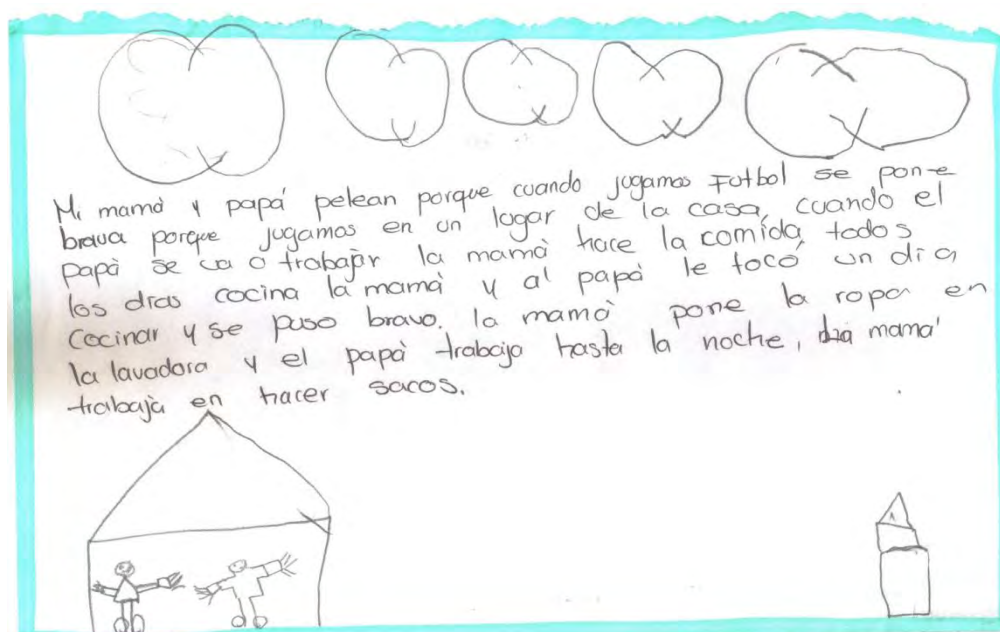 Mi mamá y papá pelean porque cuando jugamos Futbol se pone
brava porque jugamos en un lugar de la casa, cuando el
papà se va a trabajar la mamà hace la comida todos
los dias cocina la mamà y al papà le tocó un dia
cocinar y se puso bravo. la mamà pone la ropa en
la lavadora y el papà trabaja hasta la noche, mamá
trabaja en hacer sacos.